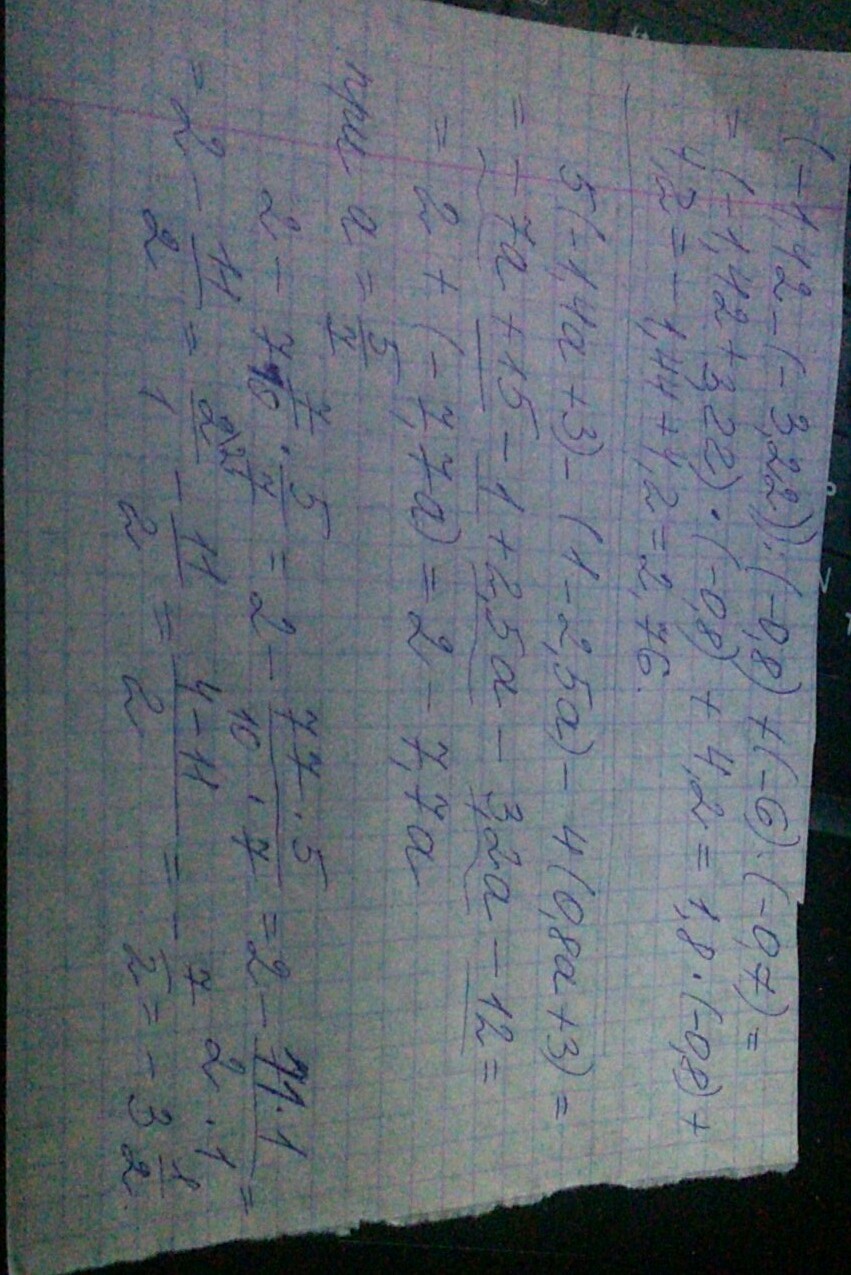 (-1,42-(-3,22)):(-0,8)+(-6)·(-0,7)=
=(-1,42+3,22)·(-0,8)+4,2=1,8·(-0,8)+
4,2=-1,44+4,2=2,76.
5(-1,4a+3)-(1-2,5a)-4(0,8a+3)=
=-7a+15-1+2,5a-3,2a-12=
=2+(-7,7a)=2-7,7a
при a=5/7
2-7 7/10·5/7=2-77·5/10·7=2-11·1/2·1=
=2-11/2=2/1-11/2=4-11/2=-7/2=-3 1/2.